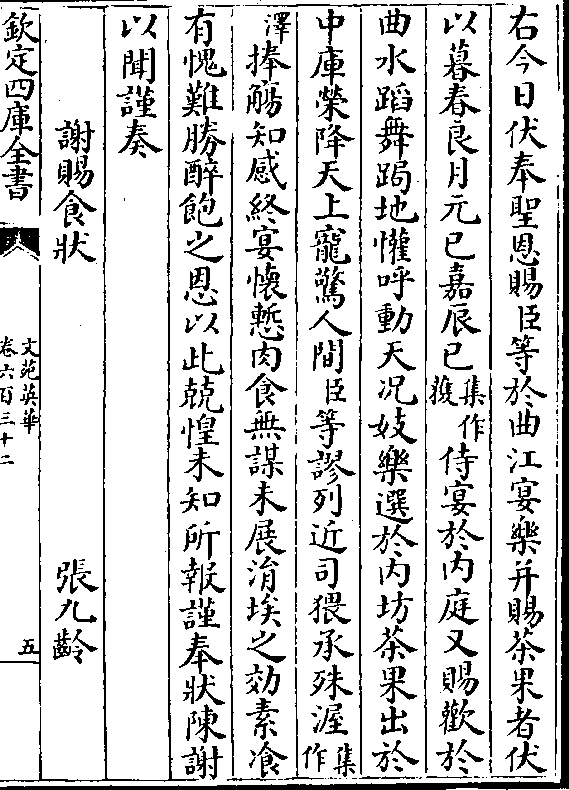 右今日伏奉聖恩賜臣等於曲江宴樂并賜茶果者伏
以暮春良月元巳嘉辰已集作獲侍宴於内庭又賜歡於
曲水蹈舞跼地懽呼動天况妓樂選於内坊茶果出於
中庫榮降天上寵驚人間臣等謬列近司猥承殊渥集作
澤捧觴知感終宴懷慙肉食無謀未展涓埃之効素飡
有愧難勝醉飽之恩以此兢惶未知所報謹奉狀陳謝
以聞謹奏
謝賜食狀 張九齡
欽定四庫全書 文苑英華 卷六百三十二 五